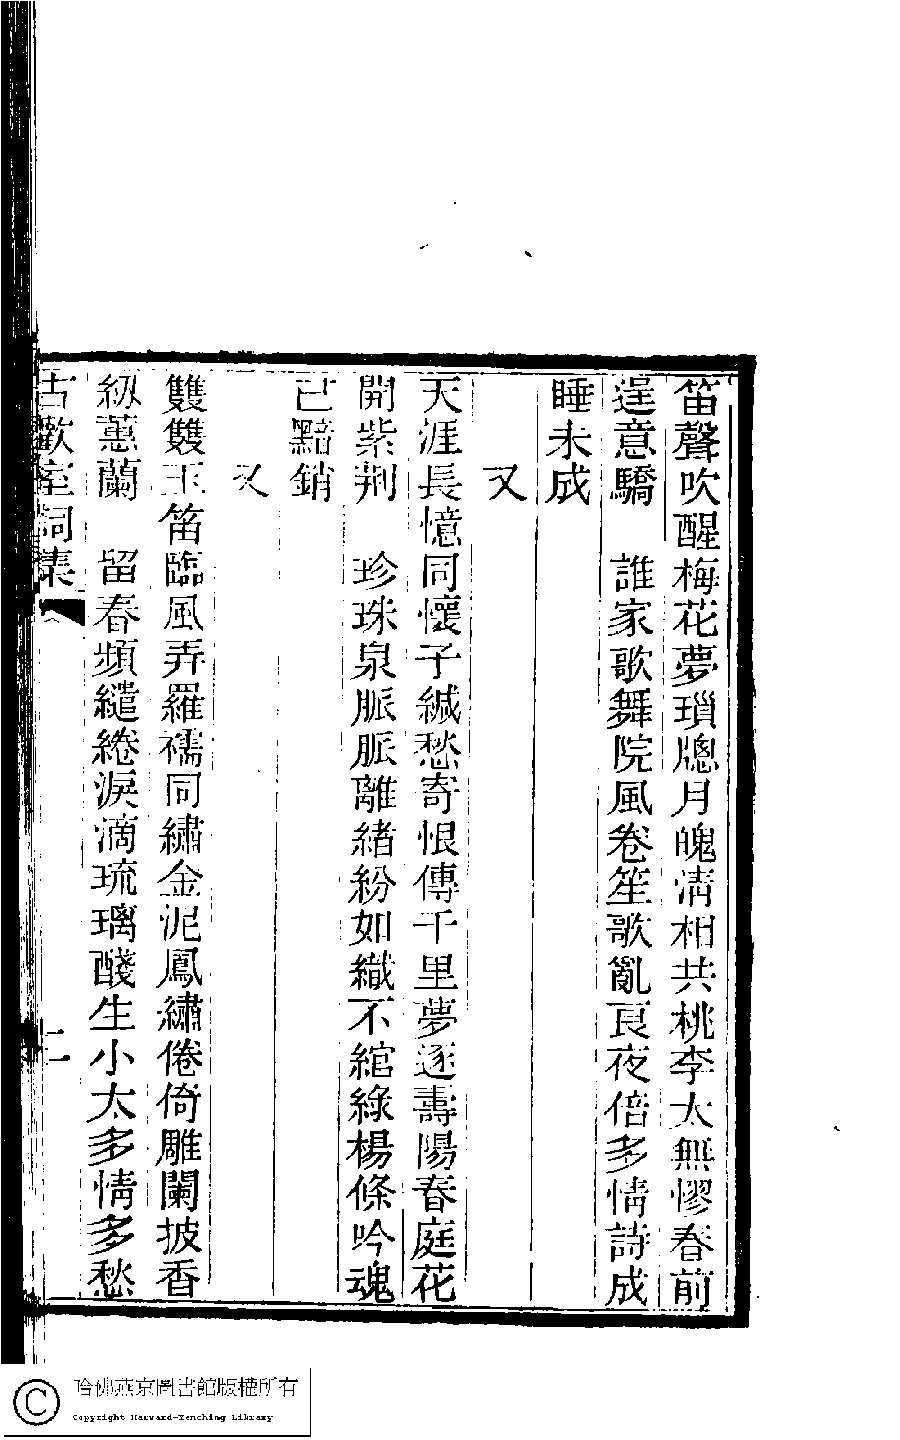 笛聲吹醒梅花夢瑣牕月魄淸相共桃李太無憀春前
逞意驕　誰家歌舞院風卷笙歌亂良夜倍多情詩成
睡未成
又
天涯長憶同懷子緘愁寄恨傳千里夢逐壽陽春庭花
開紫荆　珍珠泉脈脈離緒紛如織不綰綠楊條吟魂
已黯銷
又
雙雙玉笛臨風弄羅襦同繡金泥鳳繡倦倚雕闌披香
紉蕙蘭　留春頻繾綣淚滴琉璃醆生小太多情多愁
古歡室詞集
二
哈佛燕京圖書館版權所有
Copyright Harvard-Yenching Library